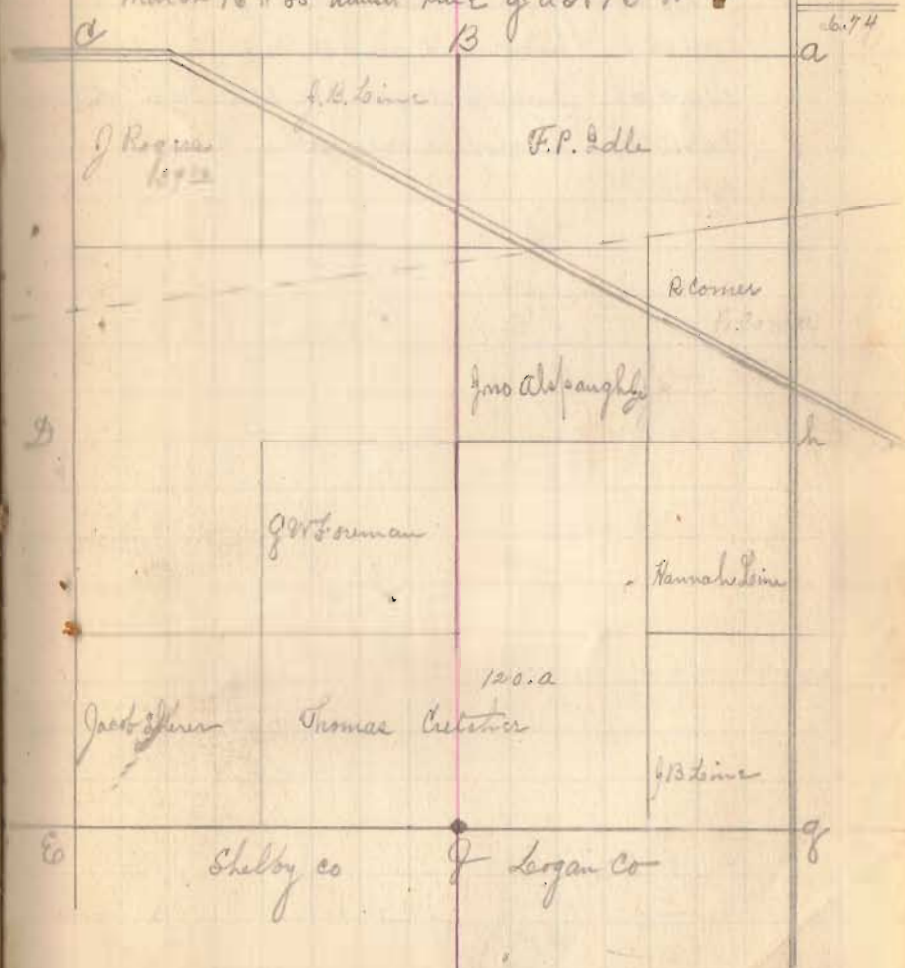 March 16
6.74
C B a
J.B. Line
J Rogers
F.P. Idle
R Comer
Jno Alspaugh
D h
G W Foreman
Hannah Line
120.a
Jacob Sherer Thomas Cretcher
J B Line
E J g
Shelby co Logan Co